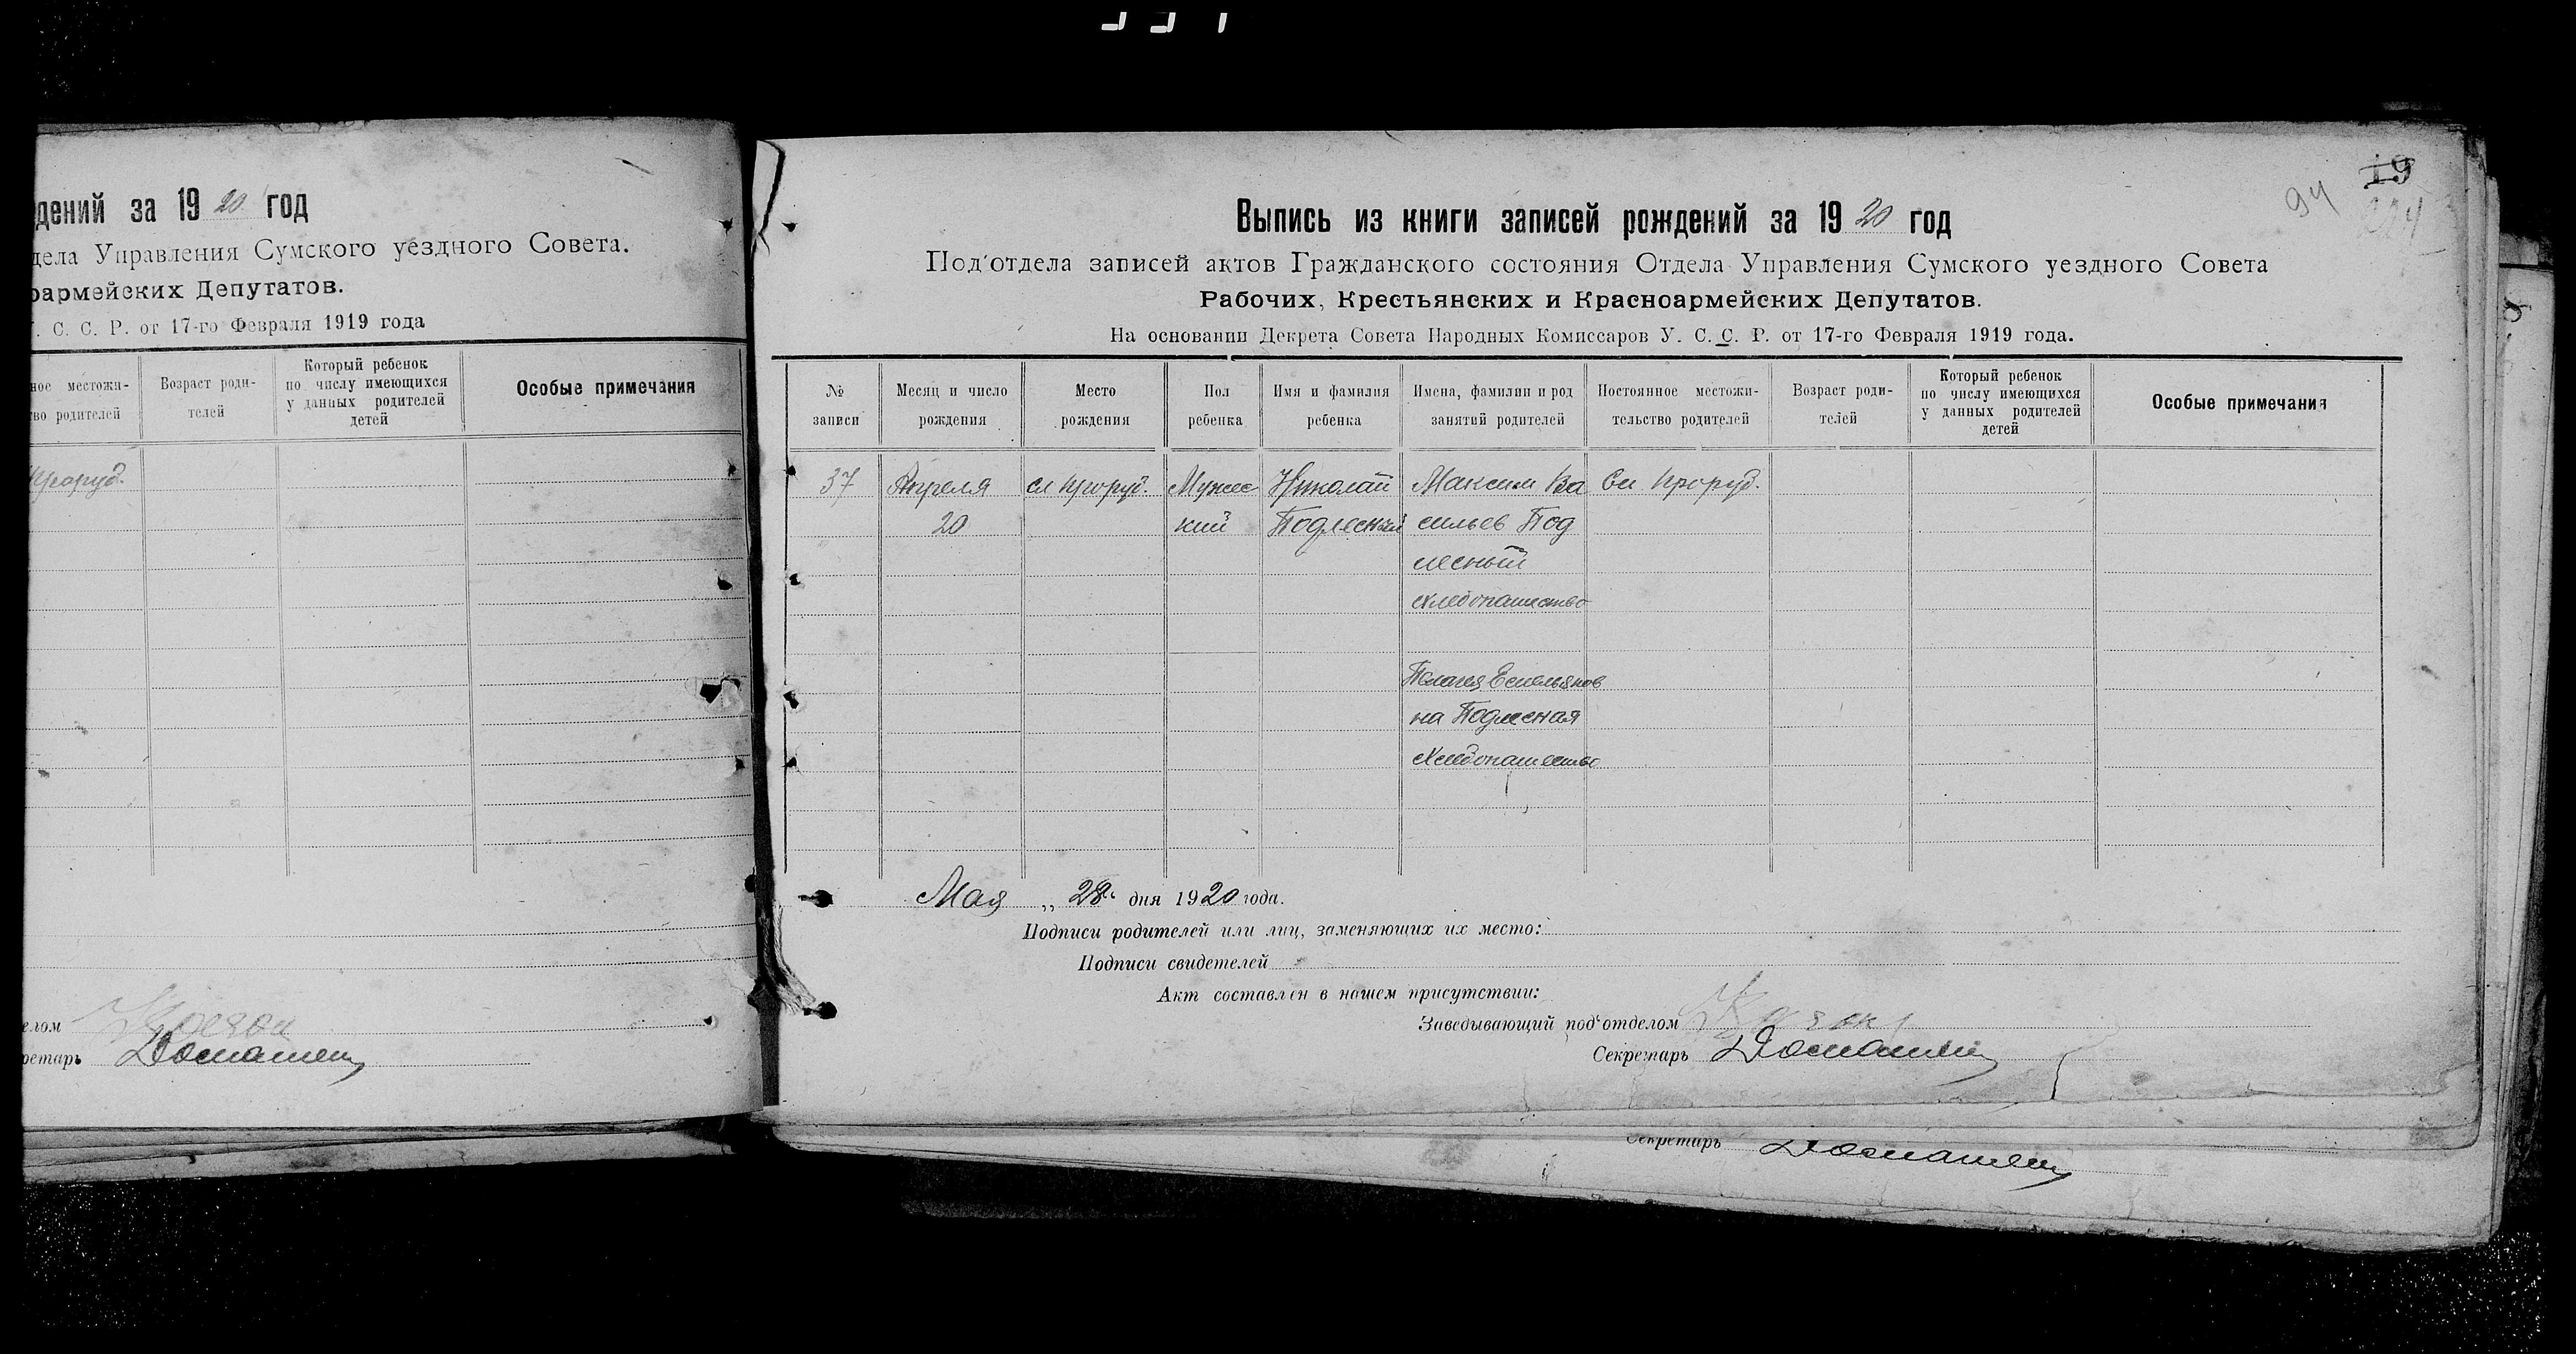 дений за 1920 год
дела Управления Сумского уездного Совета.
оармейских Депутатов.
У. С. С. Р. от 17-го Февраля 1919 года
ное местожи-
тво родителей
Возраст роди-
телей
Который ребенок
по числу имеющихся
у данных родителей
детей
Особые примечания
елом
ретарь
19
94
224
Выпись из книги записей рождений за 1920 год
Под'отдела записей актов Гражданского состояния Отдела Управления Сумского уездного Совета
Рабочих, Крестьянских и Красноармейских Депутатов.
На основании Декрета Совета Народных Комиссаров У. С. С. Р. от 17-го Февраля 1919 года.
№
записи
Месяц и число
рождения
Место
рождения
Пол
ребенка
Имя и фамилия
ребенка
Имена, фамилии и род
занятий родителей
Постоянное местожи-
тельство родителей
Возраст роди-
телей
Который ребенок
по числу имеющихся
у данных родителей
детей
Особые примечания
37
Апреля
20
сл Проруб.
Мужес
кий
Николай
Подлесный
Максим Ва
сильев Под
лесный
хлебопашество
Пелагея Емельянов
на Подлесная
Хлебопашество
Сл Проруб.
Мая „ 28" дня 1920 года.
Подписи родителей или лиц, заменяющих их место:
Подписи свидетелей
Акт составлен в нашем присутствии:
Заведывающий под'отделом
Секретарь
Секретарь